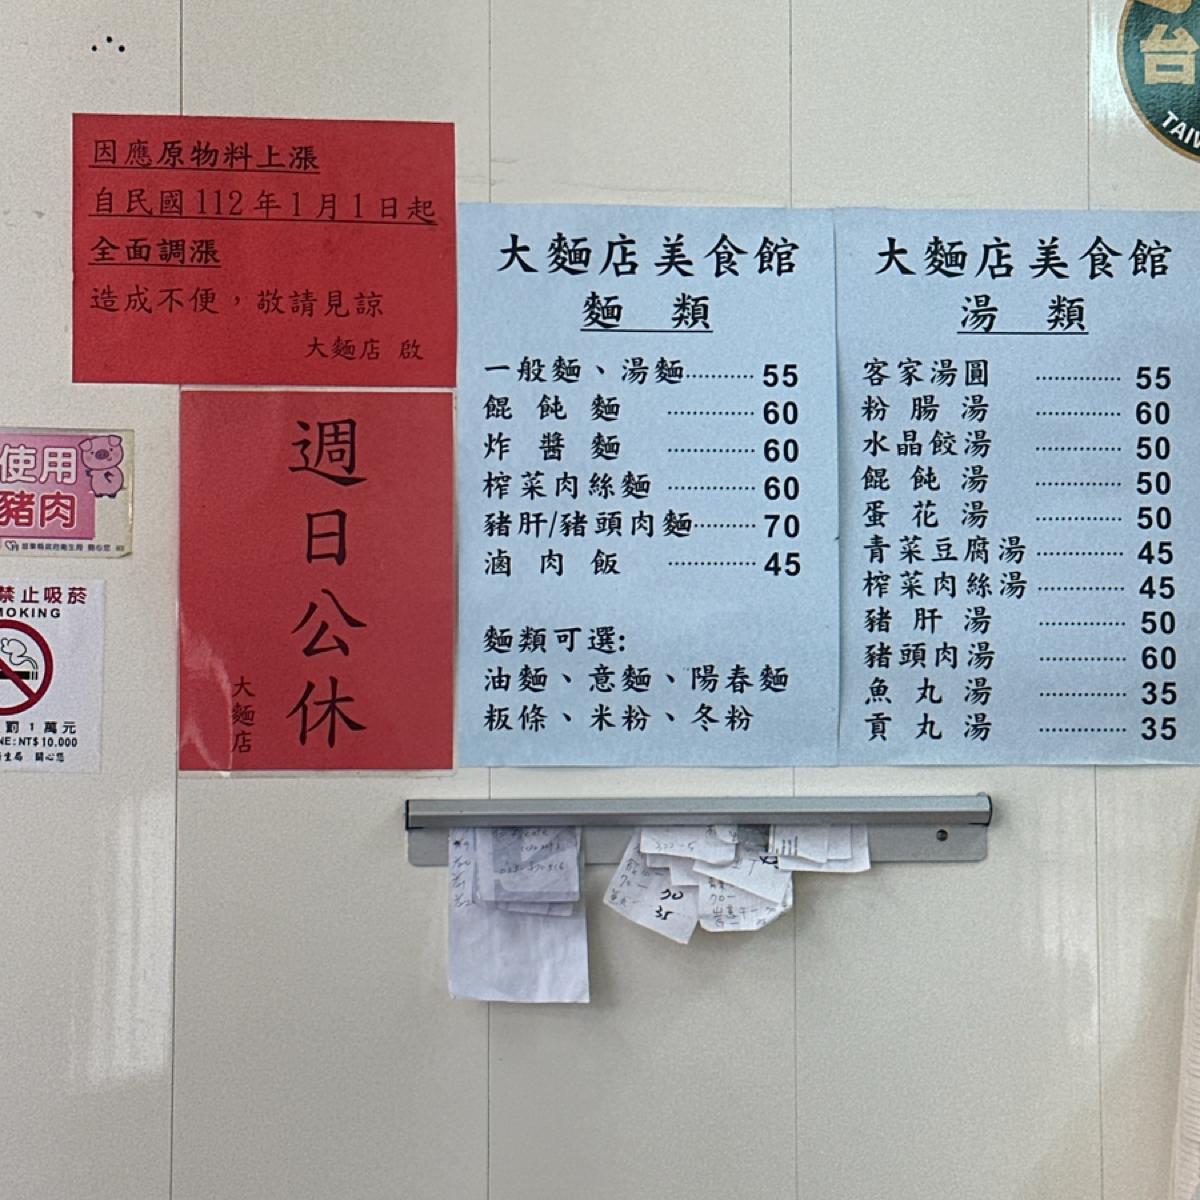 因應原物料上漲
自民國112年1月1日起
全面調漲
造成不便，敬請見諒
大麵店 啟
週日公休
大麵店
使用
豬肉
禁止吸菸
MOKING
罰1萬元
NE:NT$10,000
生局 關心您
大麵店美食館
麵 類
一般麵、湯麵............55
餛飩麵............60
炸醬麵............60
榨菜肉絲麵............60
豬肝/豬頭肉麵.........70
滷肉飯............45
麵類可選:
油麵、意麵、陽春麵
粄條、米粉、冬粉
大麵店美食館
湯 類
客家湯圓............55
粉腸湯............60
水晶餃湯............50
餛飩湯............50
蛋花湯............50
青菜豆腐湯............45
榨菜肉絲湯............45
豬肝湯............50
豬頭肉湯............60
魚丸湯............35
貢丸湯............35
台
TAIW
30
35